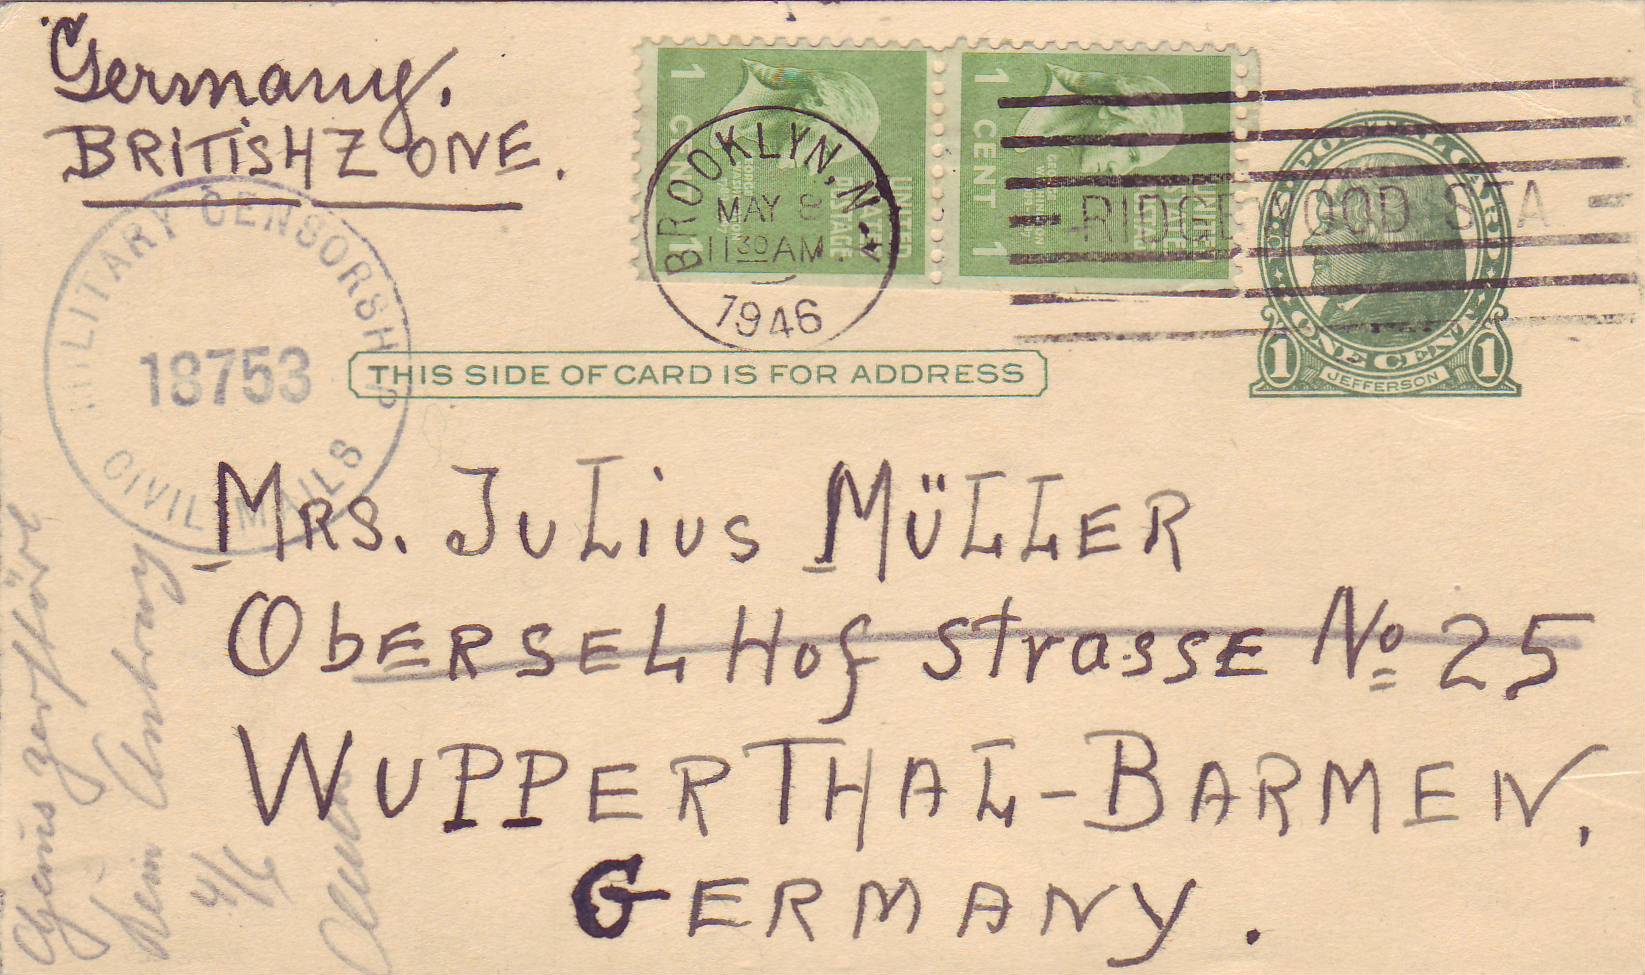 Germany.
BRITISH ZONE.
1 CENT 1
UNITED STATES POSTAGE
GEORGE WASHINGTON
1 CENT 1
UNITED STATES POSTAGE
BROOKLYN, N.Y.
MAY 8
11 30 AM
1946
RIDGEWOOD STA
U·S·POSTAL CARD
ONE CENT
1 JEFFERSON 1
MILITARY CENSORSHIP
18753
CIVIL MAILS
THIS SIDE OF CARD IS FOR ADDRESS
MRS. JULIUS MÜLLER
OBERSEL HOF STRASSE No 25
WUPPERTHAL-BARMEN,
GERMANY.
zerstört
Kein
4/6